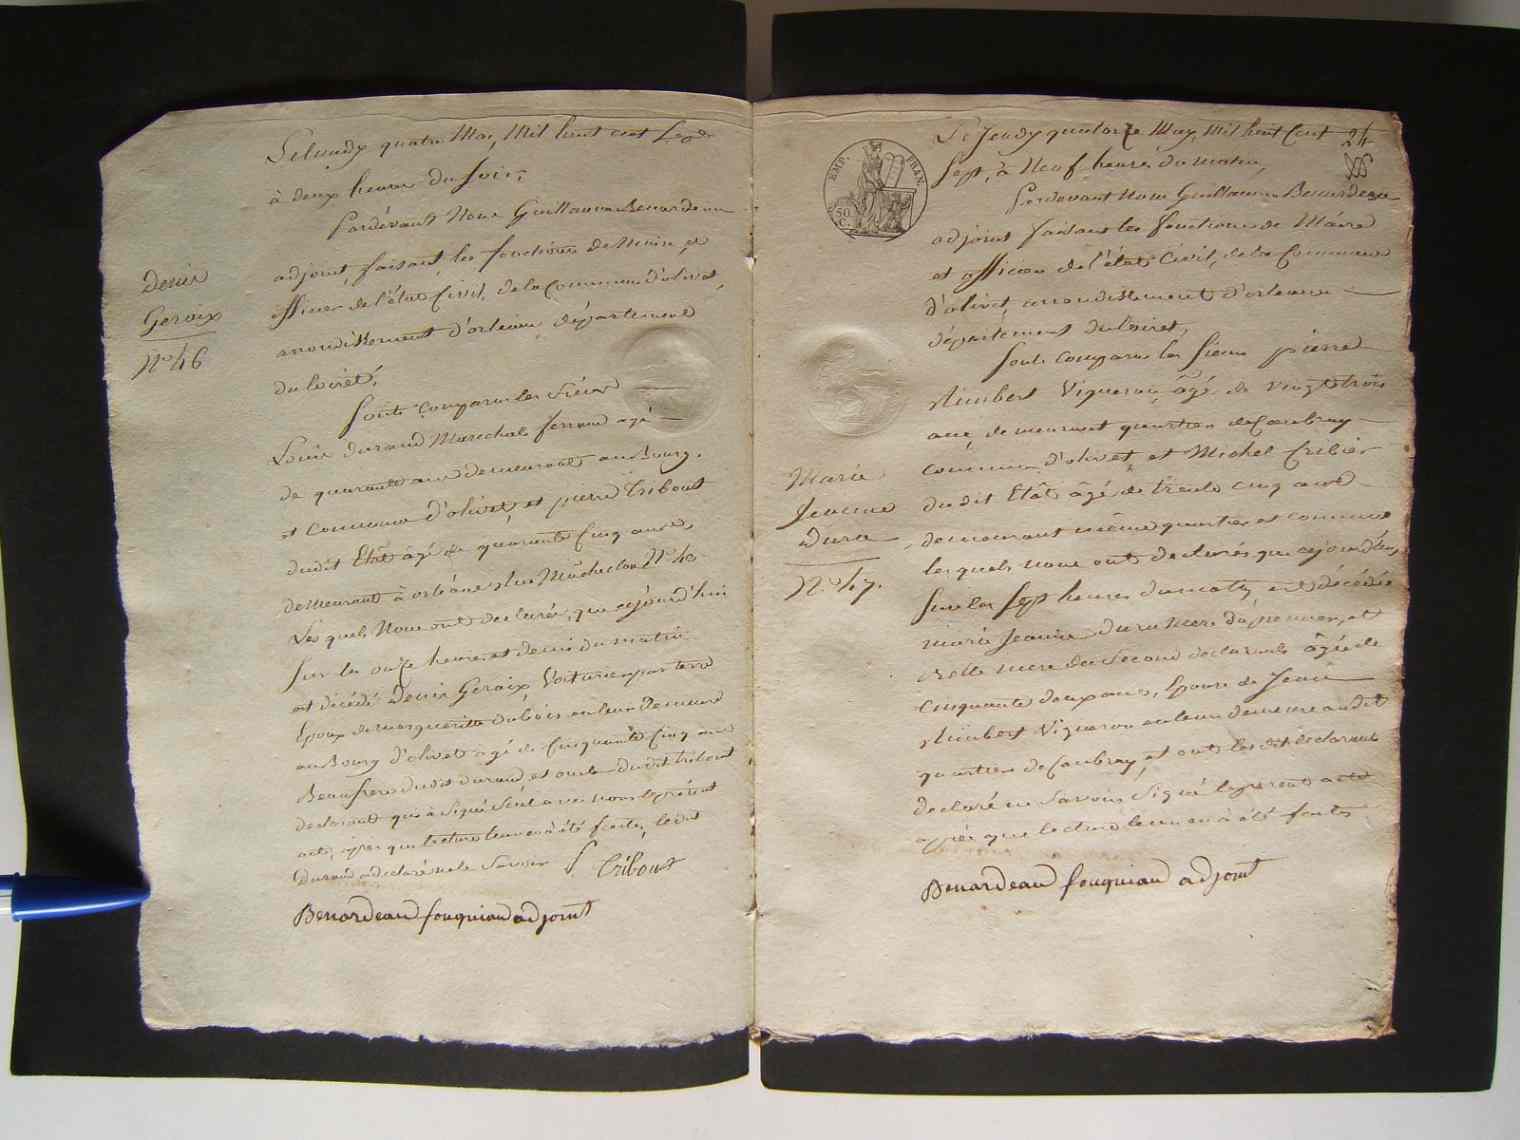 Le lundy quatre May, Mil huit cent Sept
à deux heures du soir,
Pardevant Nous Guillaume Benardeau
adjoint, faisant les fonctions de Maire, et
officier de l'état Civil, de la Commune d'olivet,
arrondissement d'orléans, département
du loiret,
Denis
Geroix
N.o 46
Sont comparus les Siéurs
Louis durand Marechal ferrand agé
de quarante ans demeurant au Bourg,
et commune d'olivet, et pierre Tribout
dudit Etât âgé de quarante cinq ans,
demeurant à orléans N.o 40
Les quels Nous ont declarés, que cejourd'hui
sur les onze heures et demie du matin
est décédé Denis Geroix, Voiturier par terre
Epoux de marguerite dubois en leur demeure
au Bourg d'olivet agé de Cinquante Cinq ans
Beaufrere dudit durand, et dudit tribout
declarant qui à Signé Seul avec nous le présent
acte, après que lecture leur en à été faite, ledit
Durand a declaré ne le Savoir P. Tribout
Benardeau fouquiau adjoint
24
EMP. FRAN.
50
C.
Le Jeudy quatorze May, Mil huit Cent
Sept, à Neuf heures du matin,
Pardevant Nous Guillaume Benardeau
adjoint faisant les fonctions de Maire
et officier de l'état Civil, de la Commune
d'olivet, arrondissement d'orleans
département du loiret,
Sont comparus les Sieurs pierre
Vigneron, âgé de vingt trois
ans, demeurant quartier de Caubray
commune d'olivet, et Michel Cribier
dudit Etât âgé de trente cinq ans
demeurant même quartier et commune
les quels nous ont declarés que cejourd'huy
Sur les Sept heures du matin est décédée
Marie
Jeanne
Duru
N.o 47.
marie Jeanne duru mere du premier, et
Belle mere du Second declarants âgée de
Cinquante deux ans, Epouse de Jean
Vigneron en leur demeure audit
quartier de Caubray, et ont lesdits declarants
declaré ne Savoir Signé le present acte
après que lecture leur en à été faite
Benardeau fouquiau adjoint